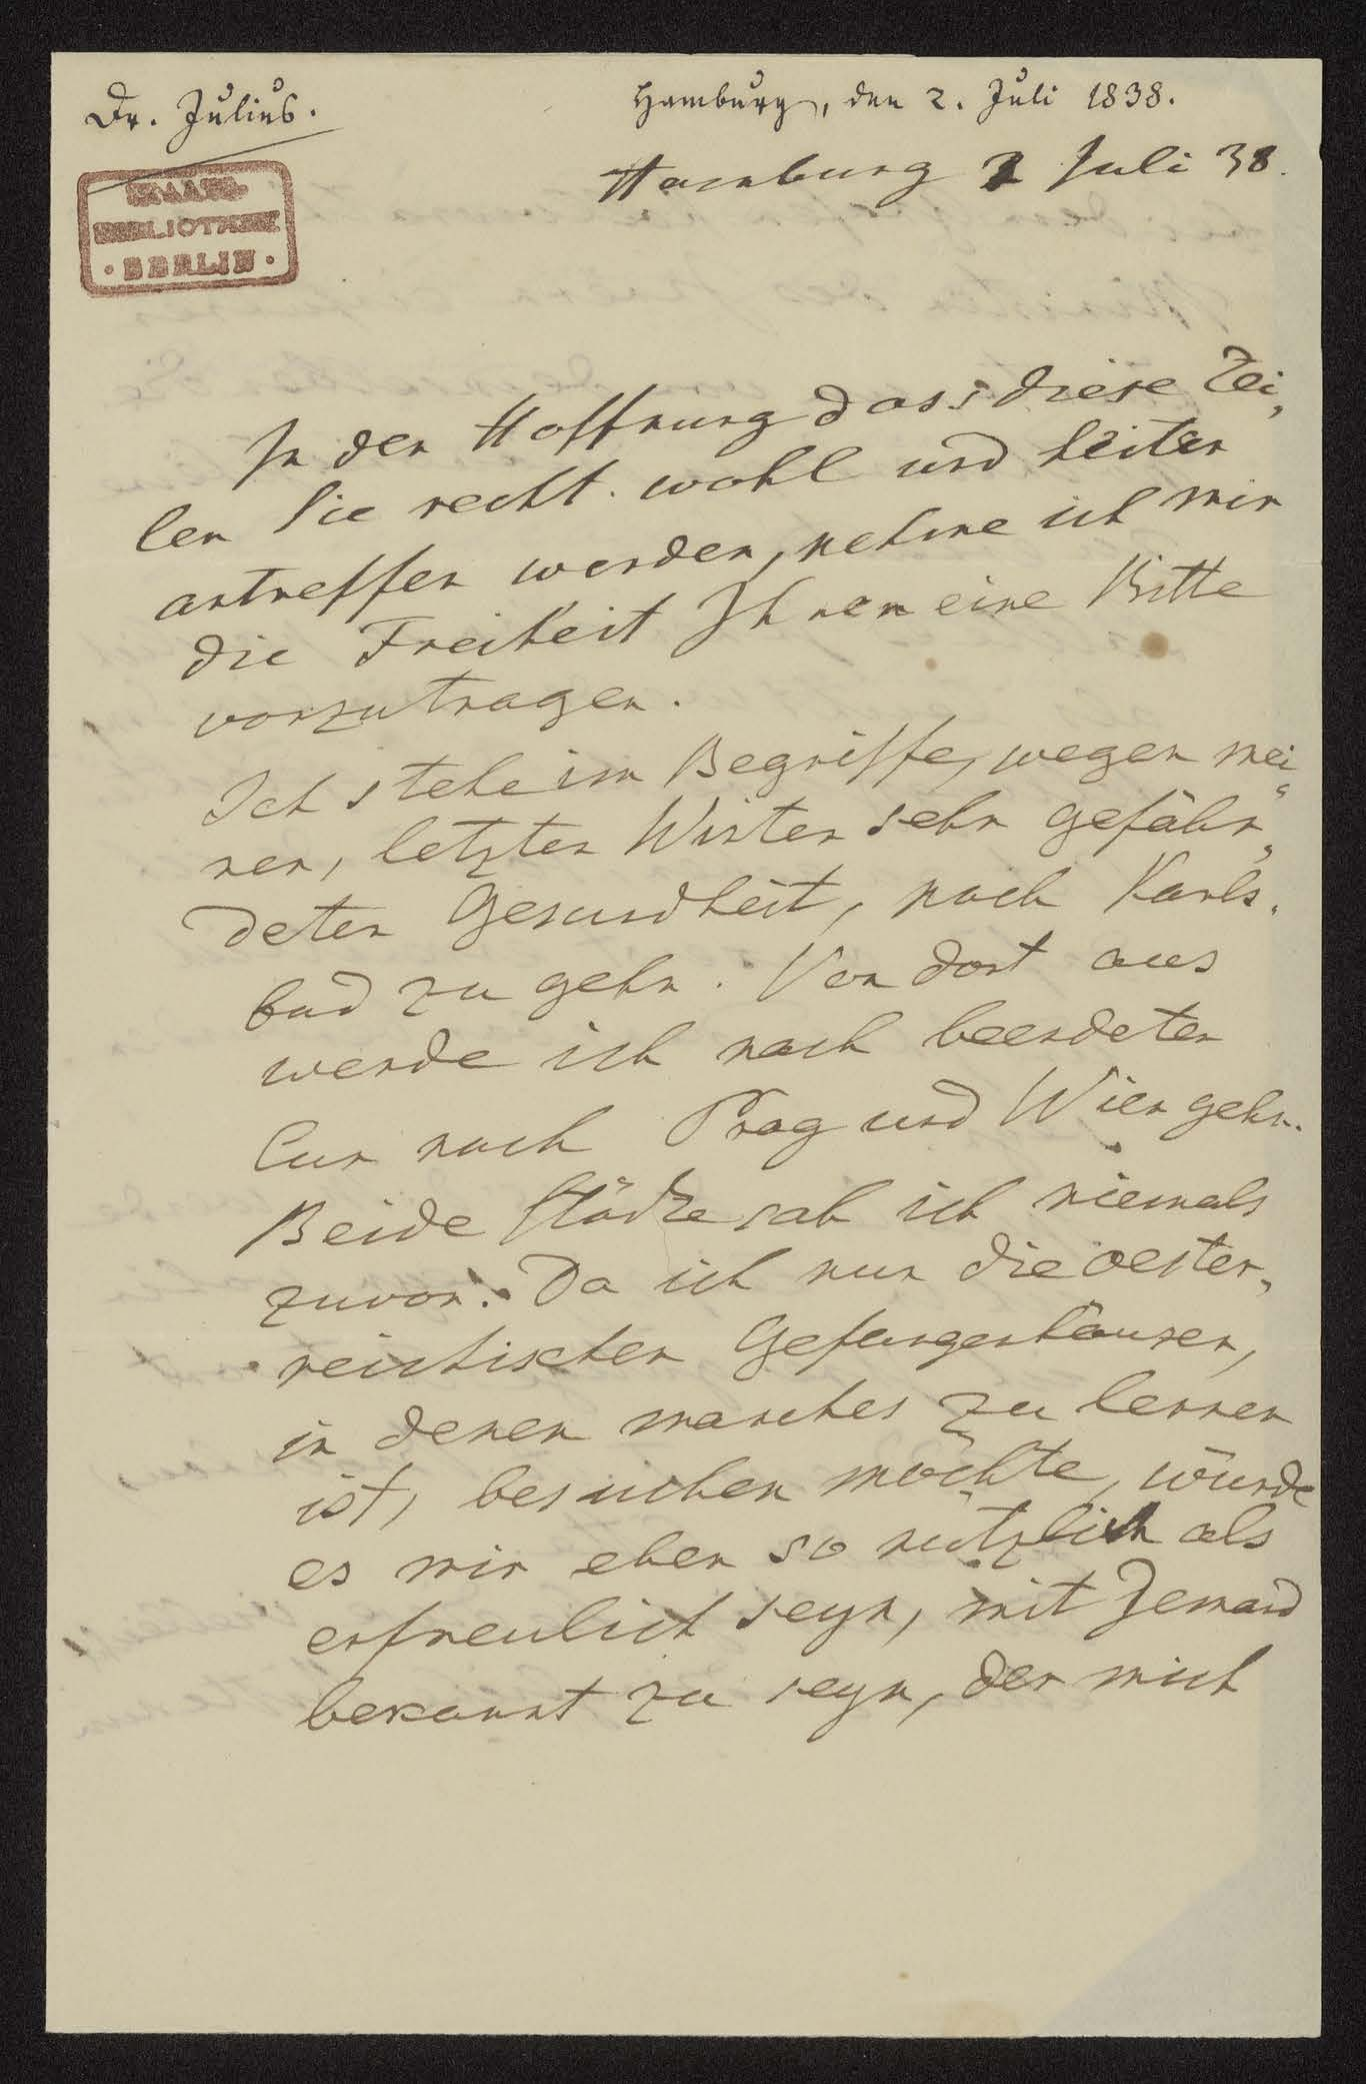 Dr. Julius.
Hamburg, den 2. Juli 1838.
Hamburg 2 Juli 38.
STAATS-
BIBLIOTHEK
· BERLIN ·
In der Hoffnung dass diese Zei„
len Sie recht wohl und heiter
antreffen werden, nehme ich mir
die Freiheit Ihnen eine Bitte
vorzutragen.
Ich stehe im Begriffe, wegen mei„
ner, letzten Winter sehr gefähr„
deten Gesundheit, nach Karls„
bad zu gehn. Von dort aus
werde ich nach beendeter
Cur nach Prag und Wien gehn.
Beide Städte sah ich niemals
zuvor. Da ich nun die oester„
reichischen Gefangenhäuser,
in denen manches zu lernen
ist, besuchen möchte, würde
es mir eben so nützlich als
erfreulich seyn, mit Jemand
bekannt zu seyn, der mich